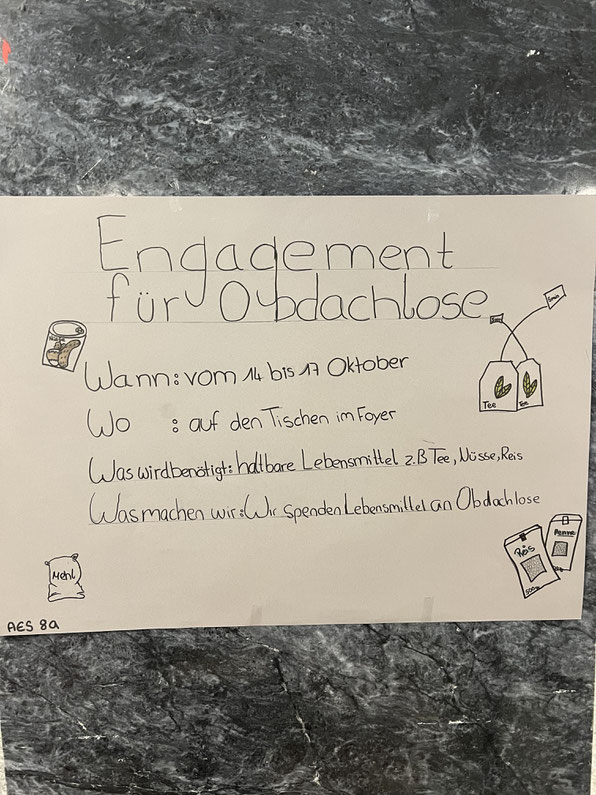 Engagement
für Obdachlose
Wann: vom 14 bis 17 Oktober
Wo : auf den Tischen im Foyer
Was wird benötigt: haltbare Lebensmittel z.B Tee, Nüsse, Reis
Was machen wir: Wir spenden Lebensmittel an Obdachlose
Tee
Tee
Reis
500g
Penne
Mehl
AES 8a